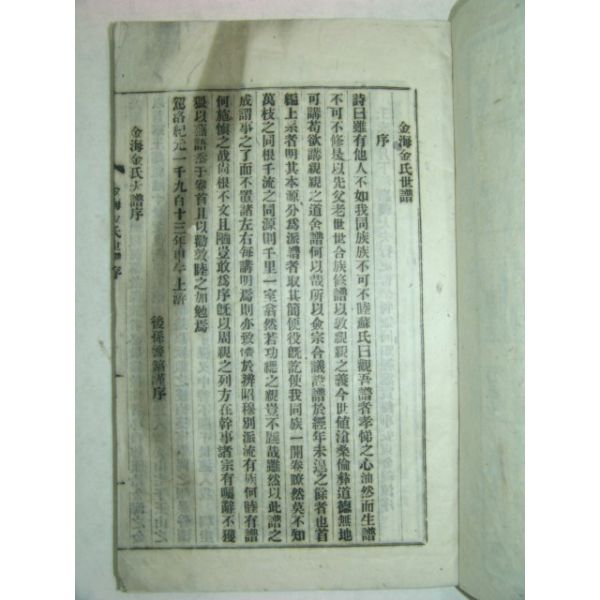 金海金氏世譜
序
詩曰雖有他人不如我同族族不可不睦蘇氏曰觀吾譜者孝悌之心油然而生譜
不可不修是以先父老世世合族修譜以敦親親之義今世値滄桑倫彛道德無地
可講苟欲講親親之道舍譜何以哉所以僉宗合議設譜於經年未遑之餘者也首
編上系者明其本源分爲派譜者取其簡便役旣訖使我同族一開卷瞭然莫不知
萬枝之同根千流之同源則千里一室翕然若功緦之親豈不韙哉雖然以此譜之
成謂事之了而不置諸左右每每講明焉則亦致於辨昭穆別派流有族何睦有譜
何施愼之哉尙根不文且陋豈敢爲序旣以周親之列方在幹事諸宗有囑辭不獲
猥以蕪語弁于卷首且以勸敦睦之加勉焉
駕洛紀元一千九百十三年甲午上澣
後孫 謹序
金海金氏大譜序
金海金氏世譜 序
一